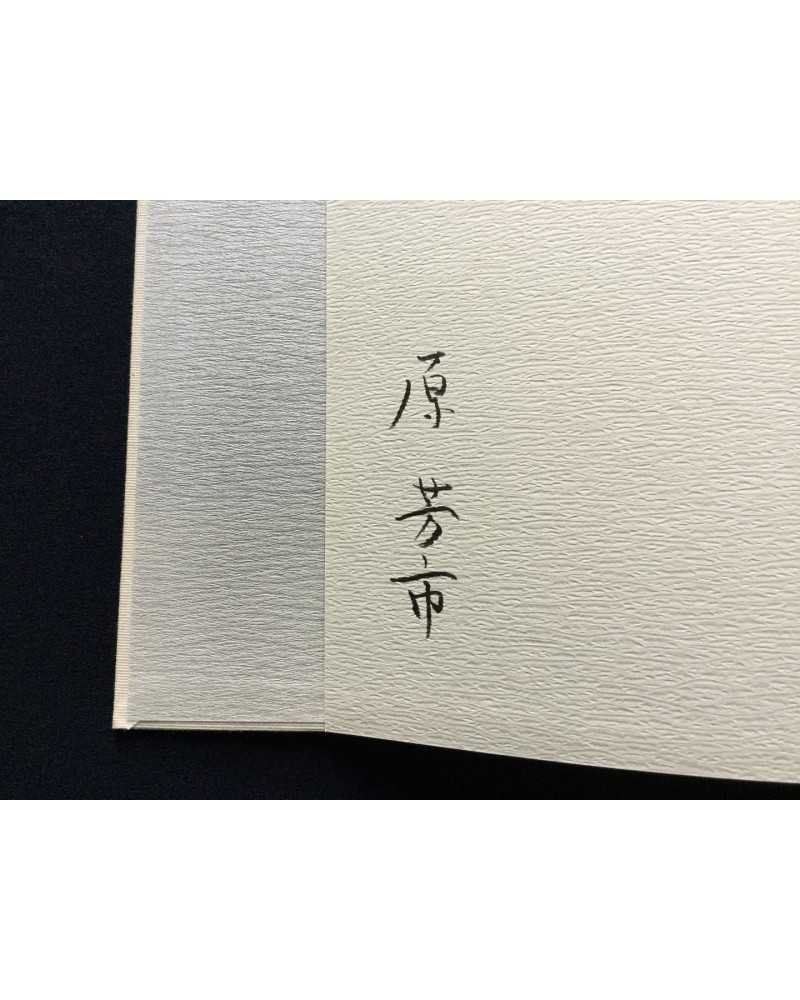 原 芳市